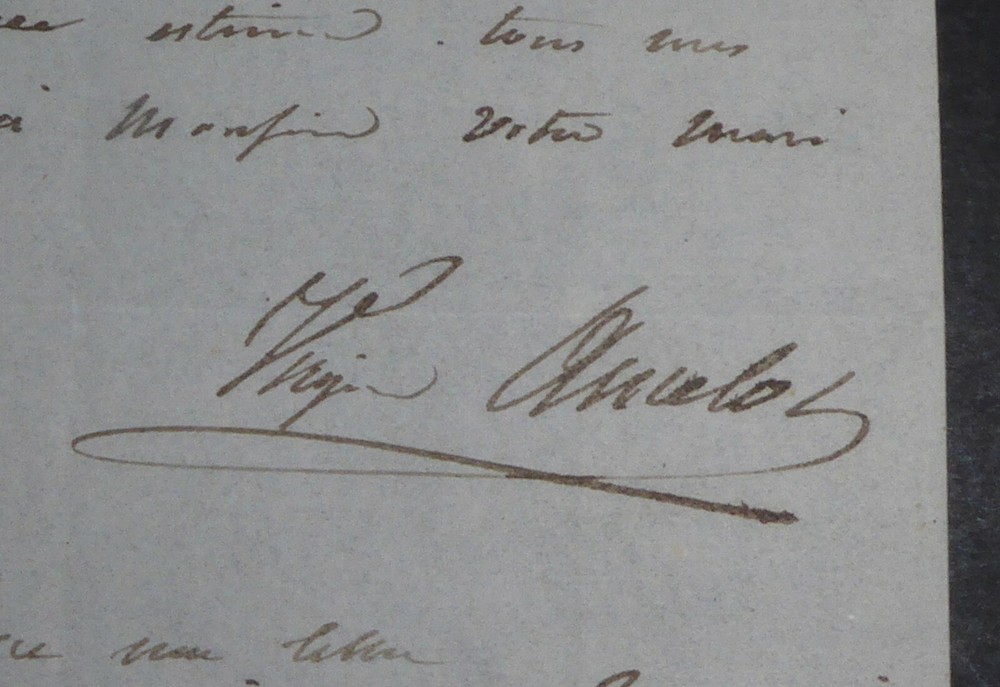 estime . tous mes
à Monsieur votre mari
Vgie Ancelot
une lettre